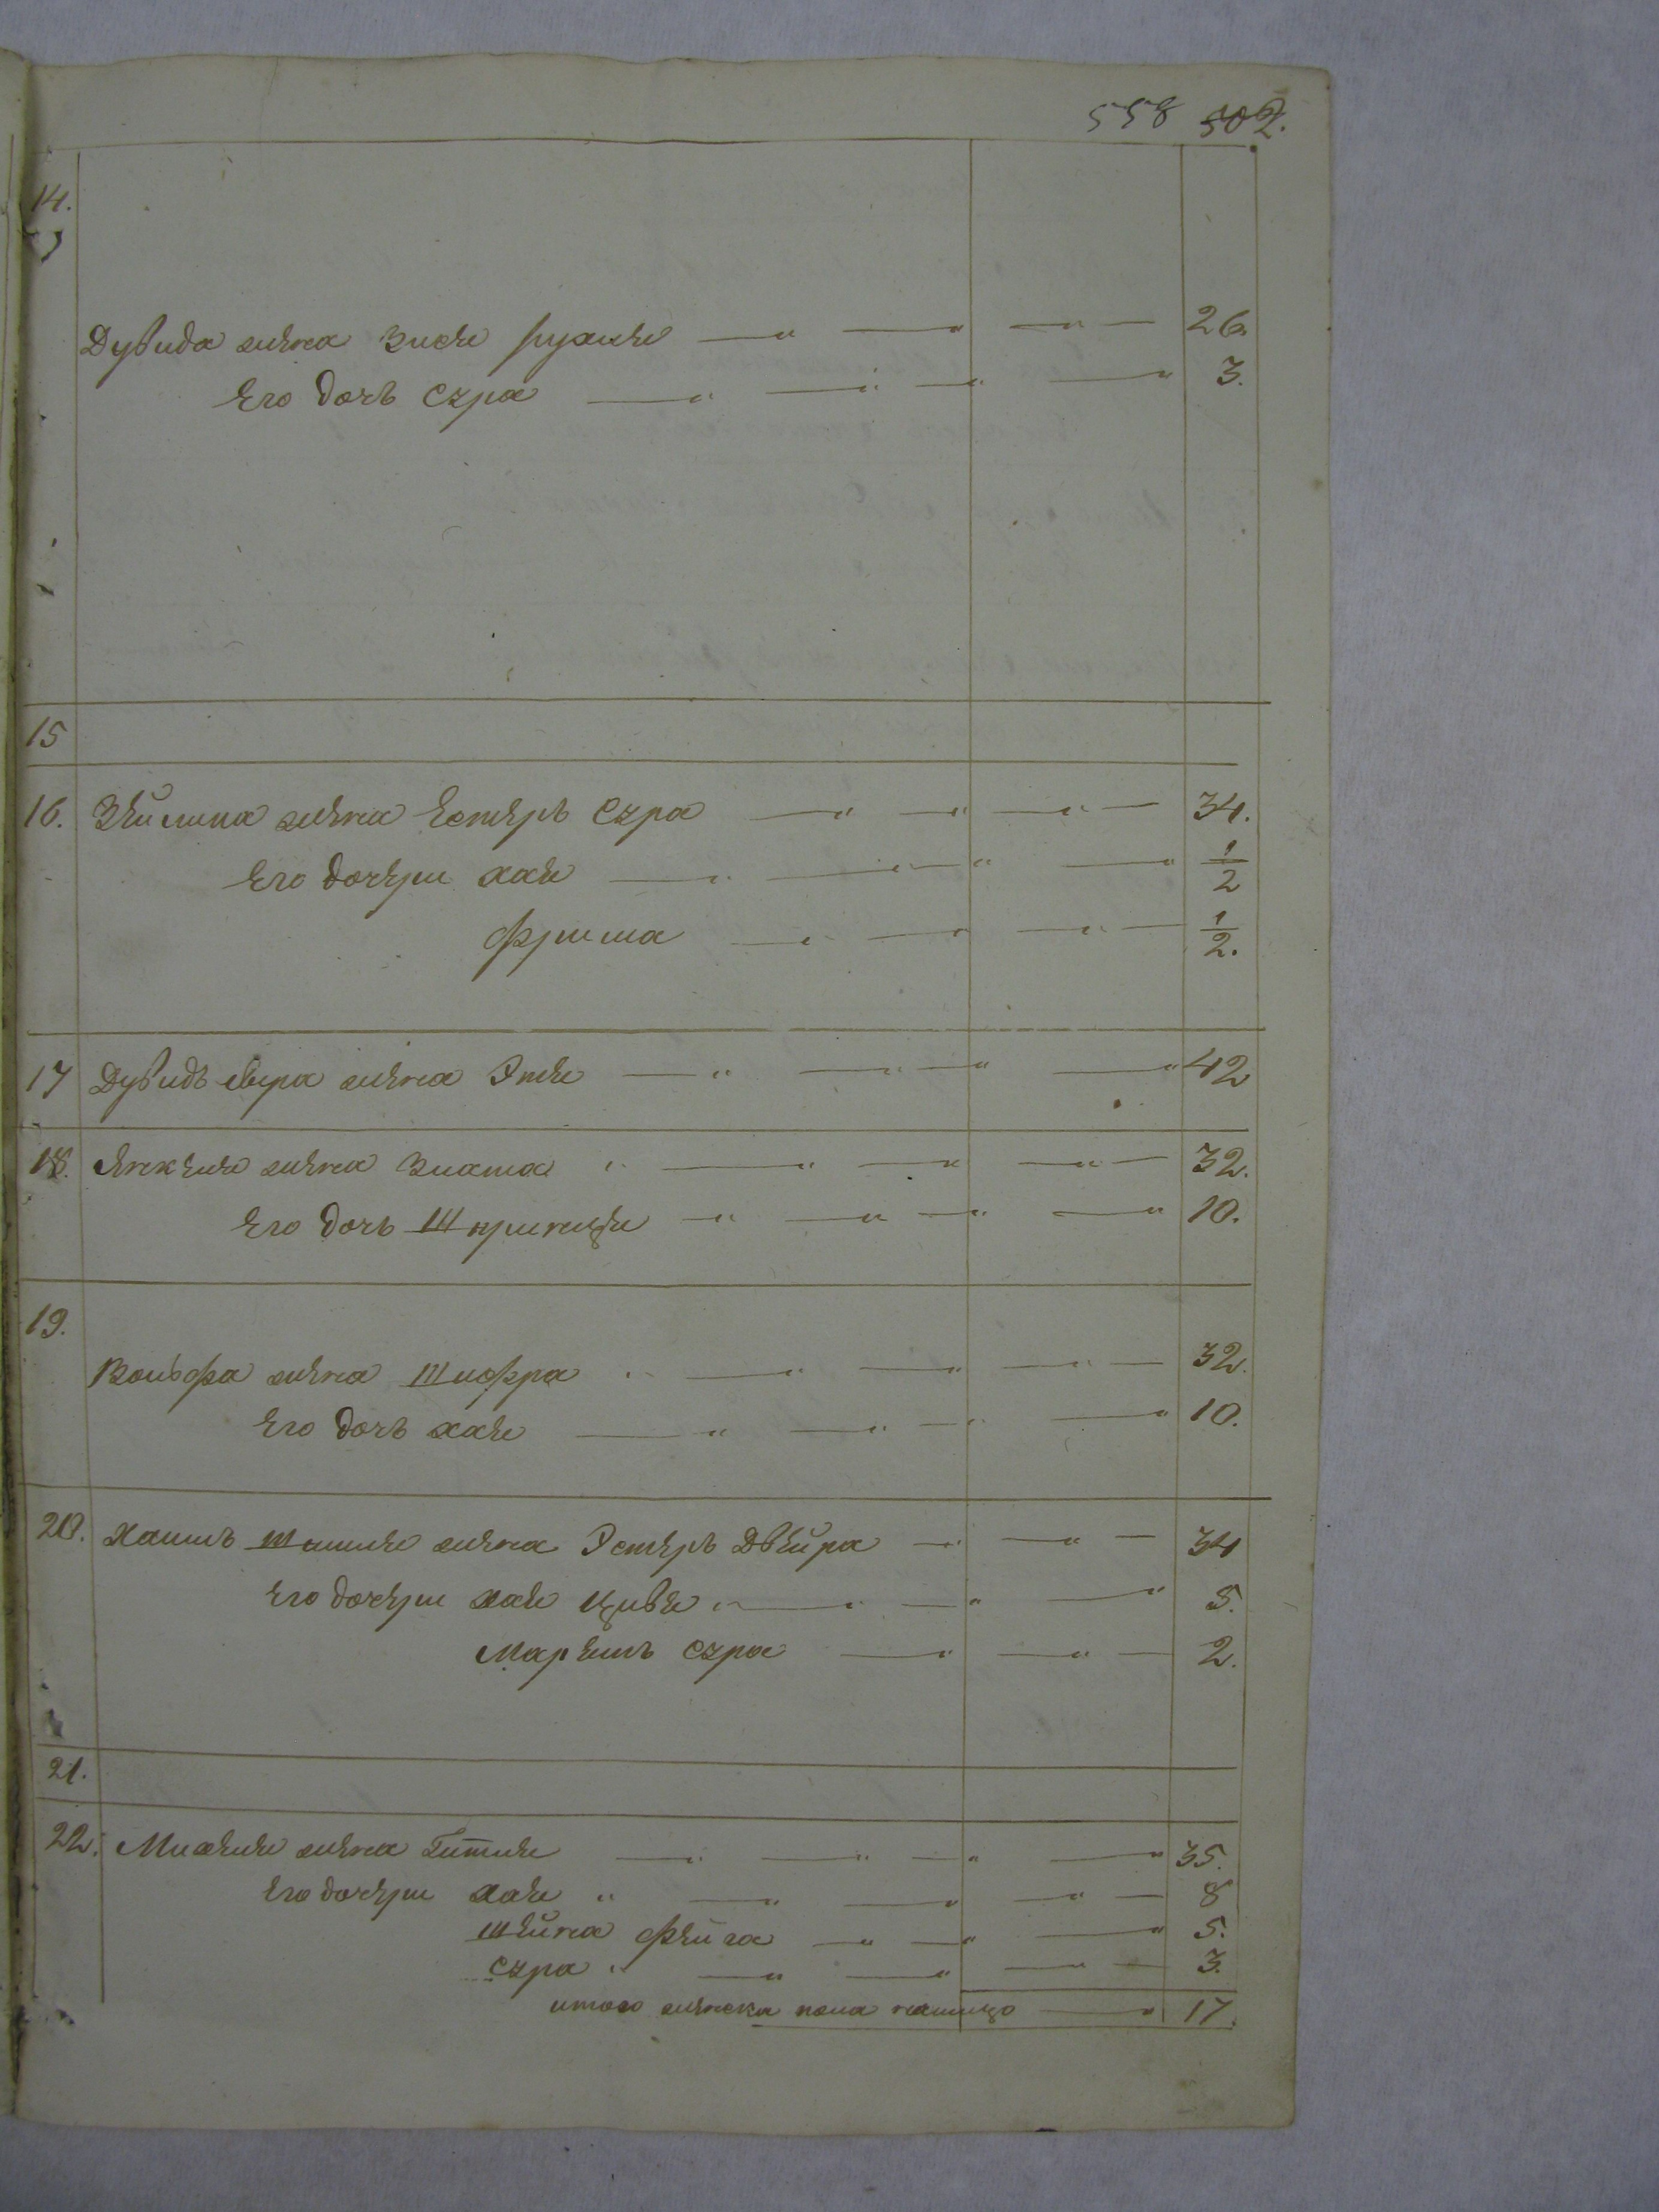 558 502.
14.
Дувида жена Зисле Рухле 26
Его дочь Сура 3.
15
16. Зейлика жена Естеръ Сура 34.
Его дочери Хае 1/2
Фрима 1/2.
17 Дувидъ Лейра жена Этле 42
18. Янкеля жена Злата 32.
Его дочь Шпринце 10.
19.
Вольфа жена Шифра 32.
Его дочь Хае 10.
20. Хаимъ жена Эстеръ Двейра 34
Его дочери Хае Цивье 5.
Марьемъ Сура 2.
21.
22. Михеля жена Гителе 35.
Его дочери Хае 8
Шейна Фейга 5.
Сура 3.
итого женска пола налицо 17.